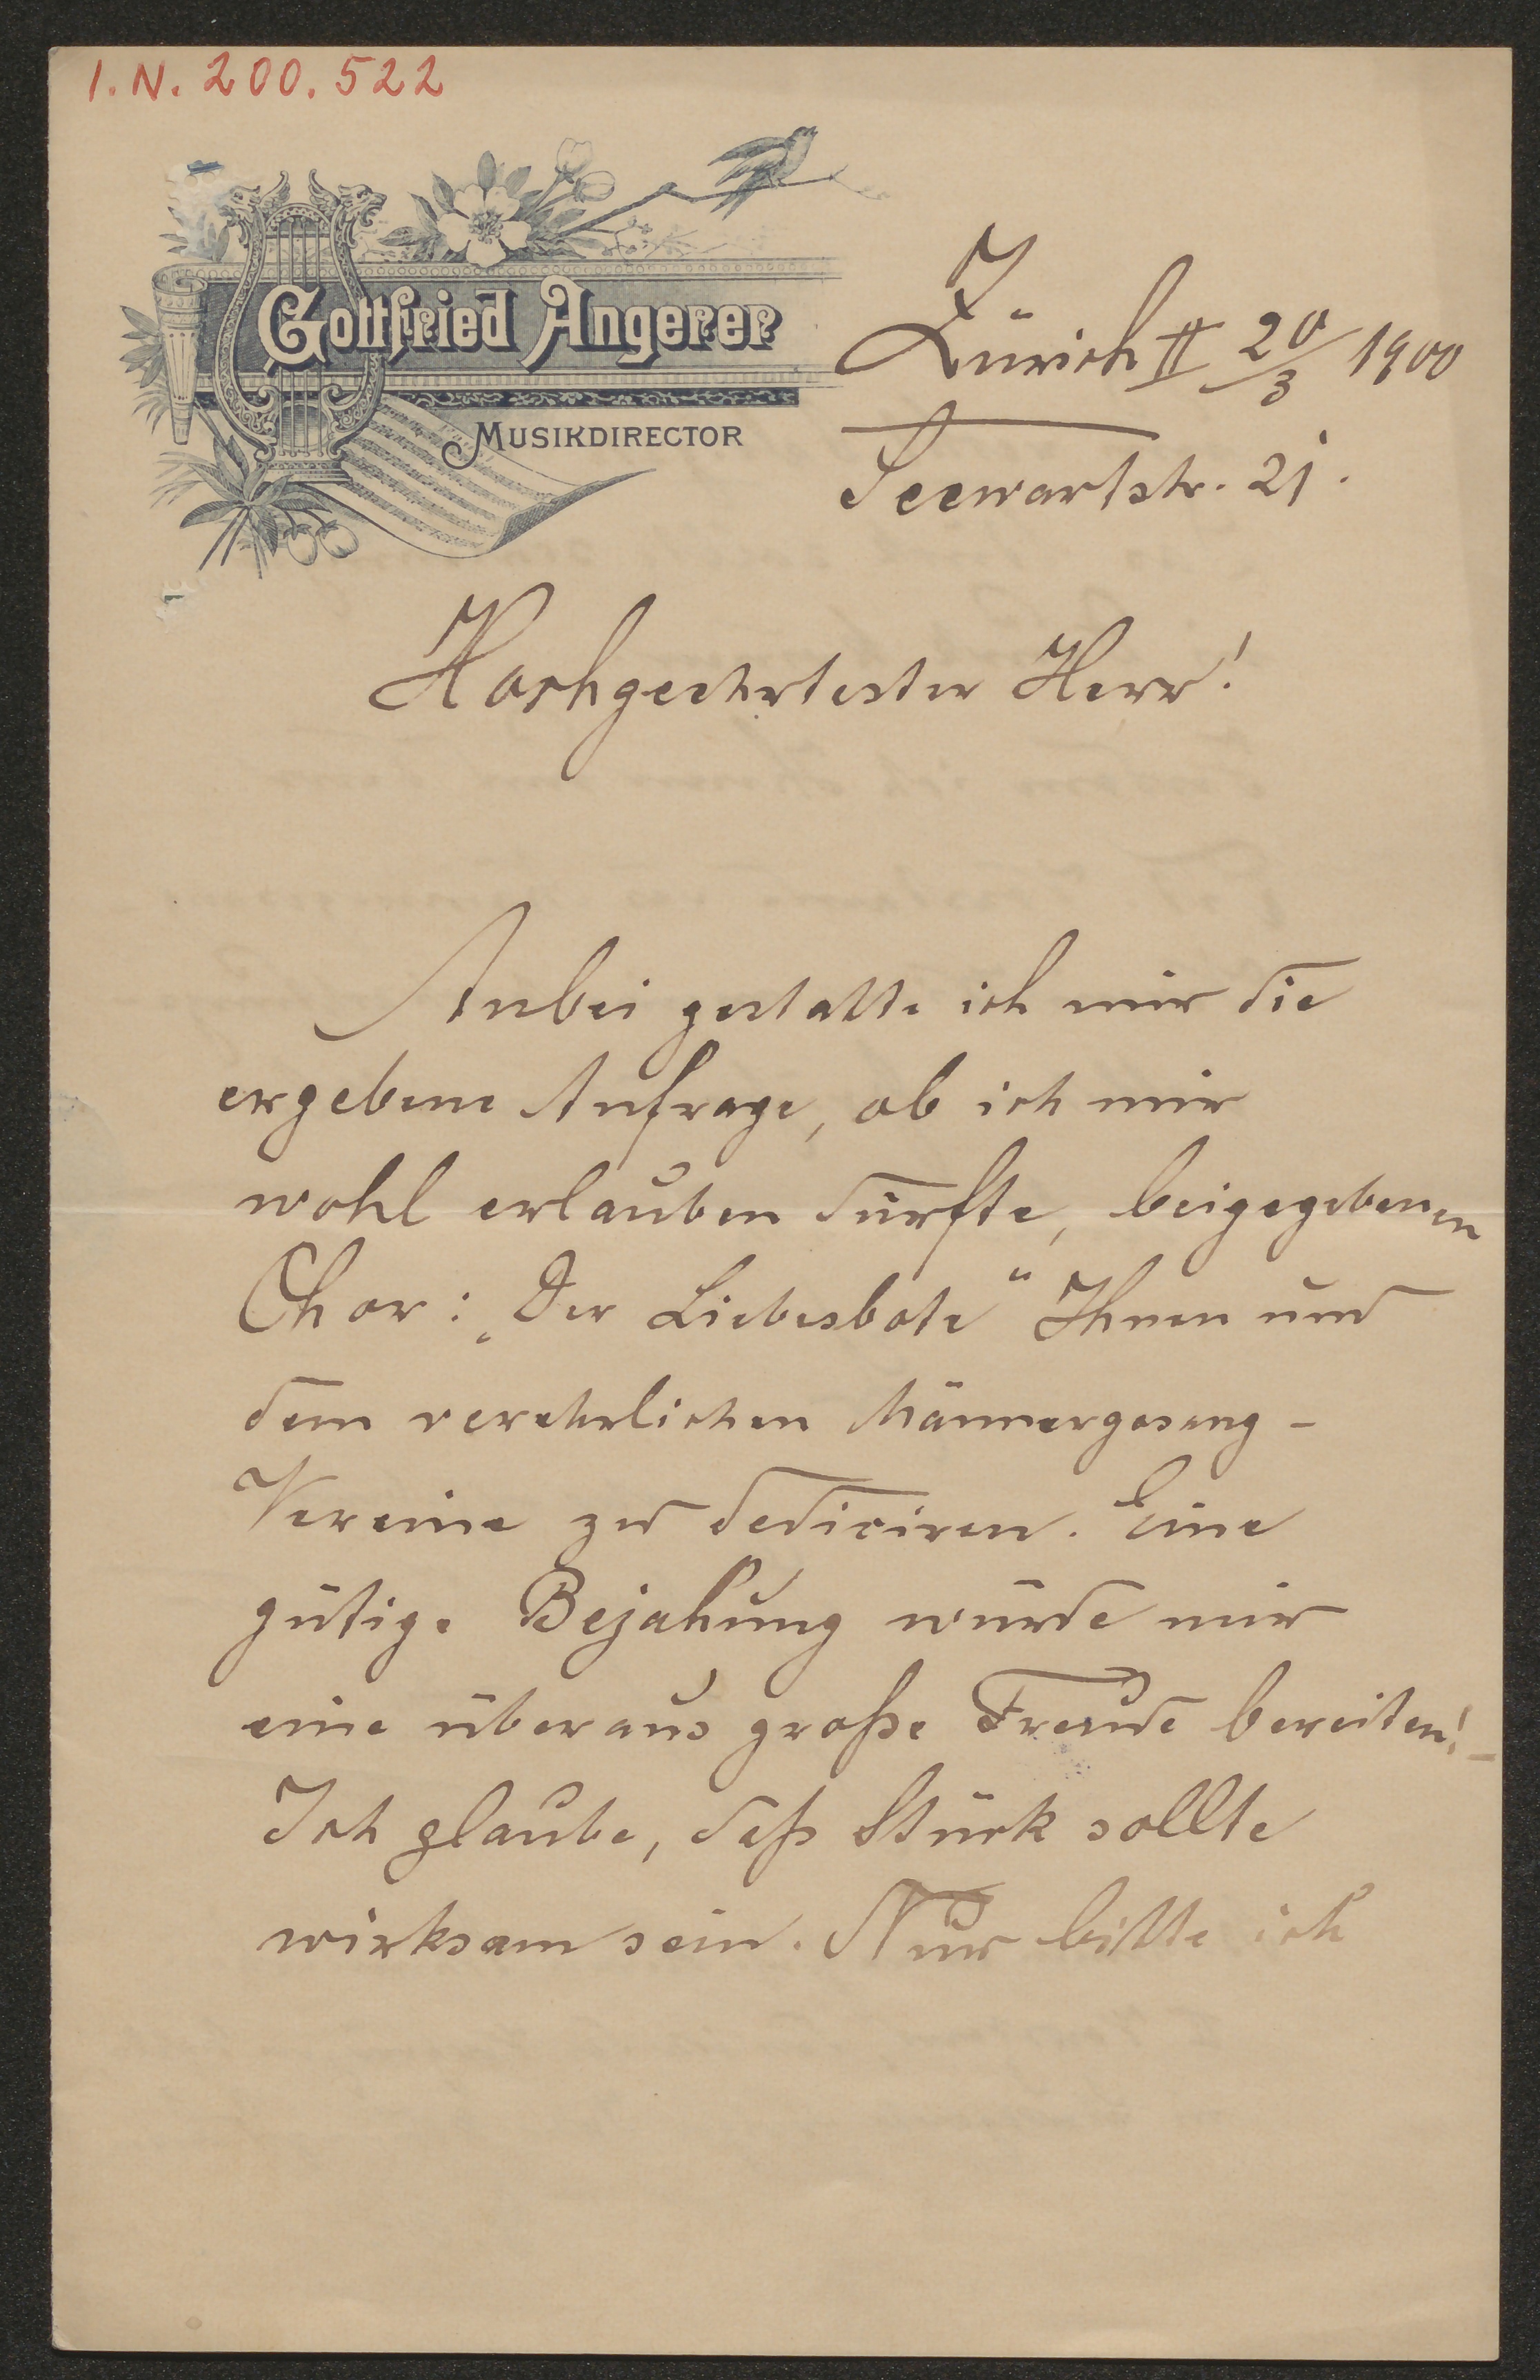 I.N. 200.522
Gottfried Angerer
MUSIKDIRECTOR
Zürich II 20/3 1900
Seewartstr. 21.
Hochgeehrtester Herr!
Anbei gestatte ich mir die
ergebene Anfrage, ob ich mir
wohl erlauben dürfte, beigegebenen
Chor: „Der Liebesbote“ Ihnen und
dem verehrlichen Männergesang-
Vereine zu dediciren. Eine
gütige Bejahung würde mir
eine überaus große Freude bereiten! –
Ich glaube, daß Stück sollte
wirksam sein. Nur bitte ich